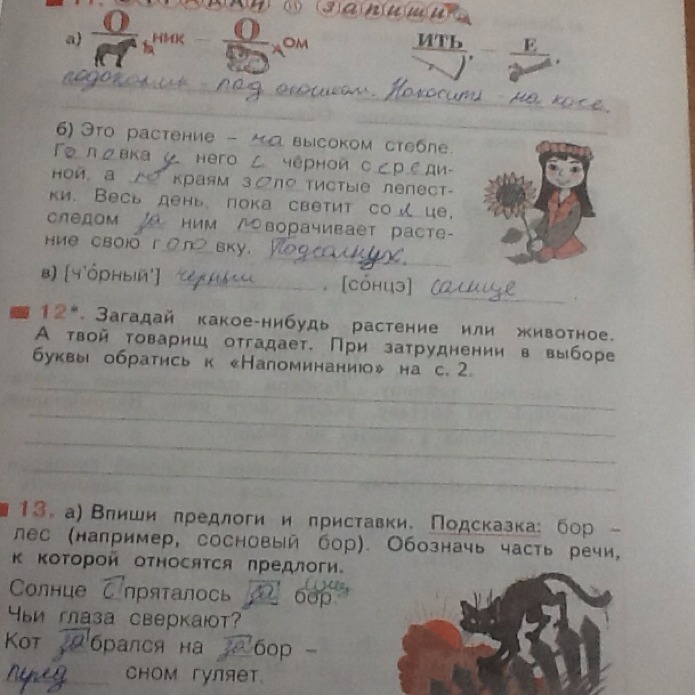 11. Отгадай и запиши.
а) О ник – О ом ИТЬ – Е.
подоконник - под окошком. Накосить - на косе.
б) Это растение – на высоком стебле.
Головка у него с чёрной среди-
ной, а по краям золотистые лепест-
ки. Весь день, пока светит солнце,
следом за ним поворачивает расте-
ние свою головку. Подсолнух.
в) [ч'о́рный'] черный. [со́нцэ] солнце.
12*. Загадай какое-нибудь растение или животное.
А твой товарищ отгадает. При затруднении в выборе
буквы обратись к «Напоминанию» на с. 2.
13. а) Впиши предлоги и приставки. Подсказка: бор –
лес (например, сосновый бор). Обозначь часть речи,
к которой относятся предлоги.
Солнце спряталось за бор.
Чьи глаза сверкают?
Кот забрался на забор –
перед сном гуляет.